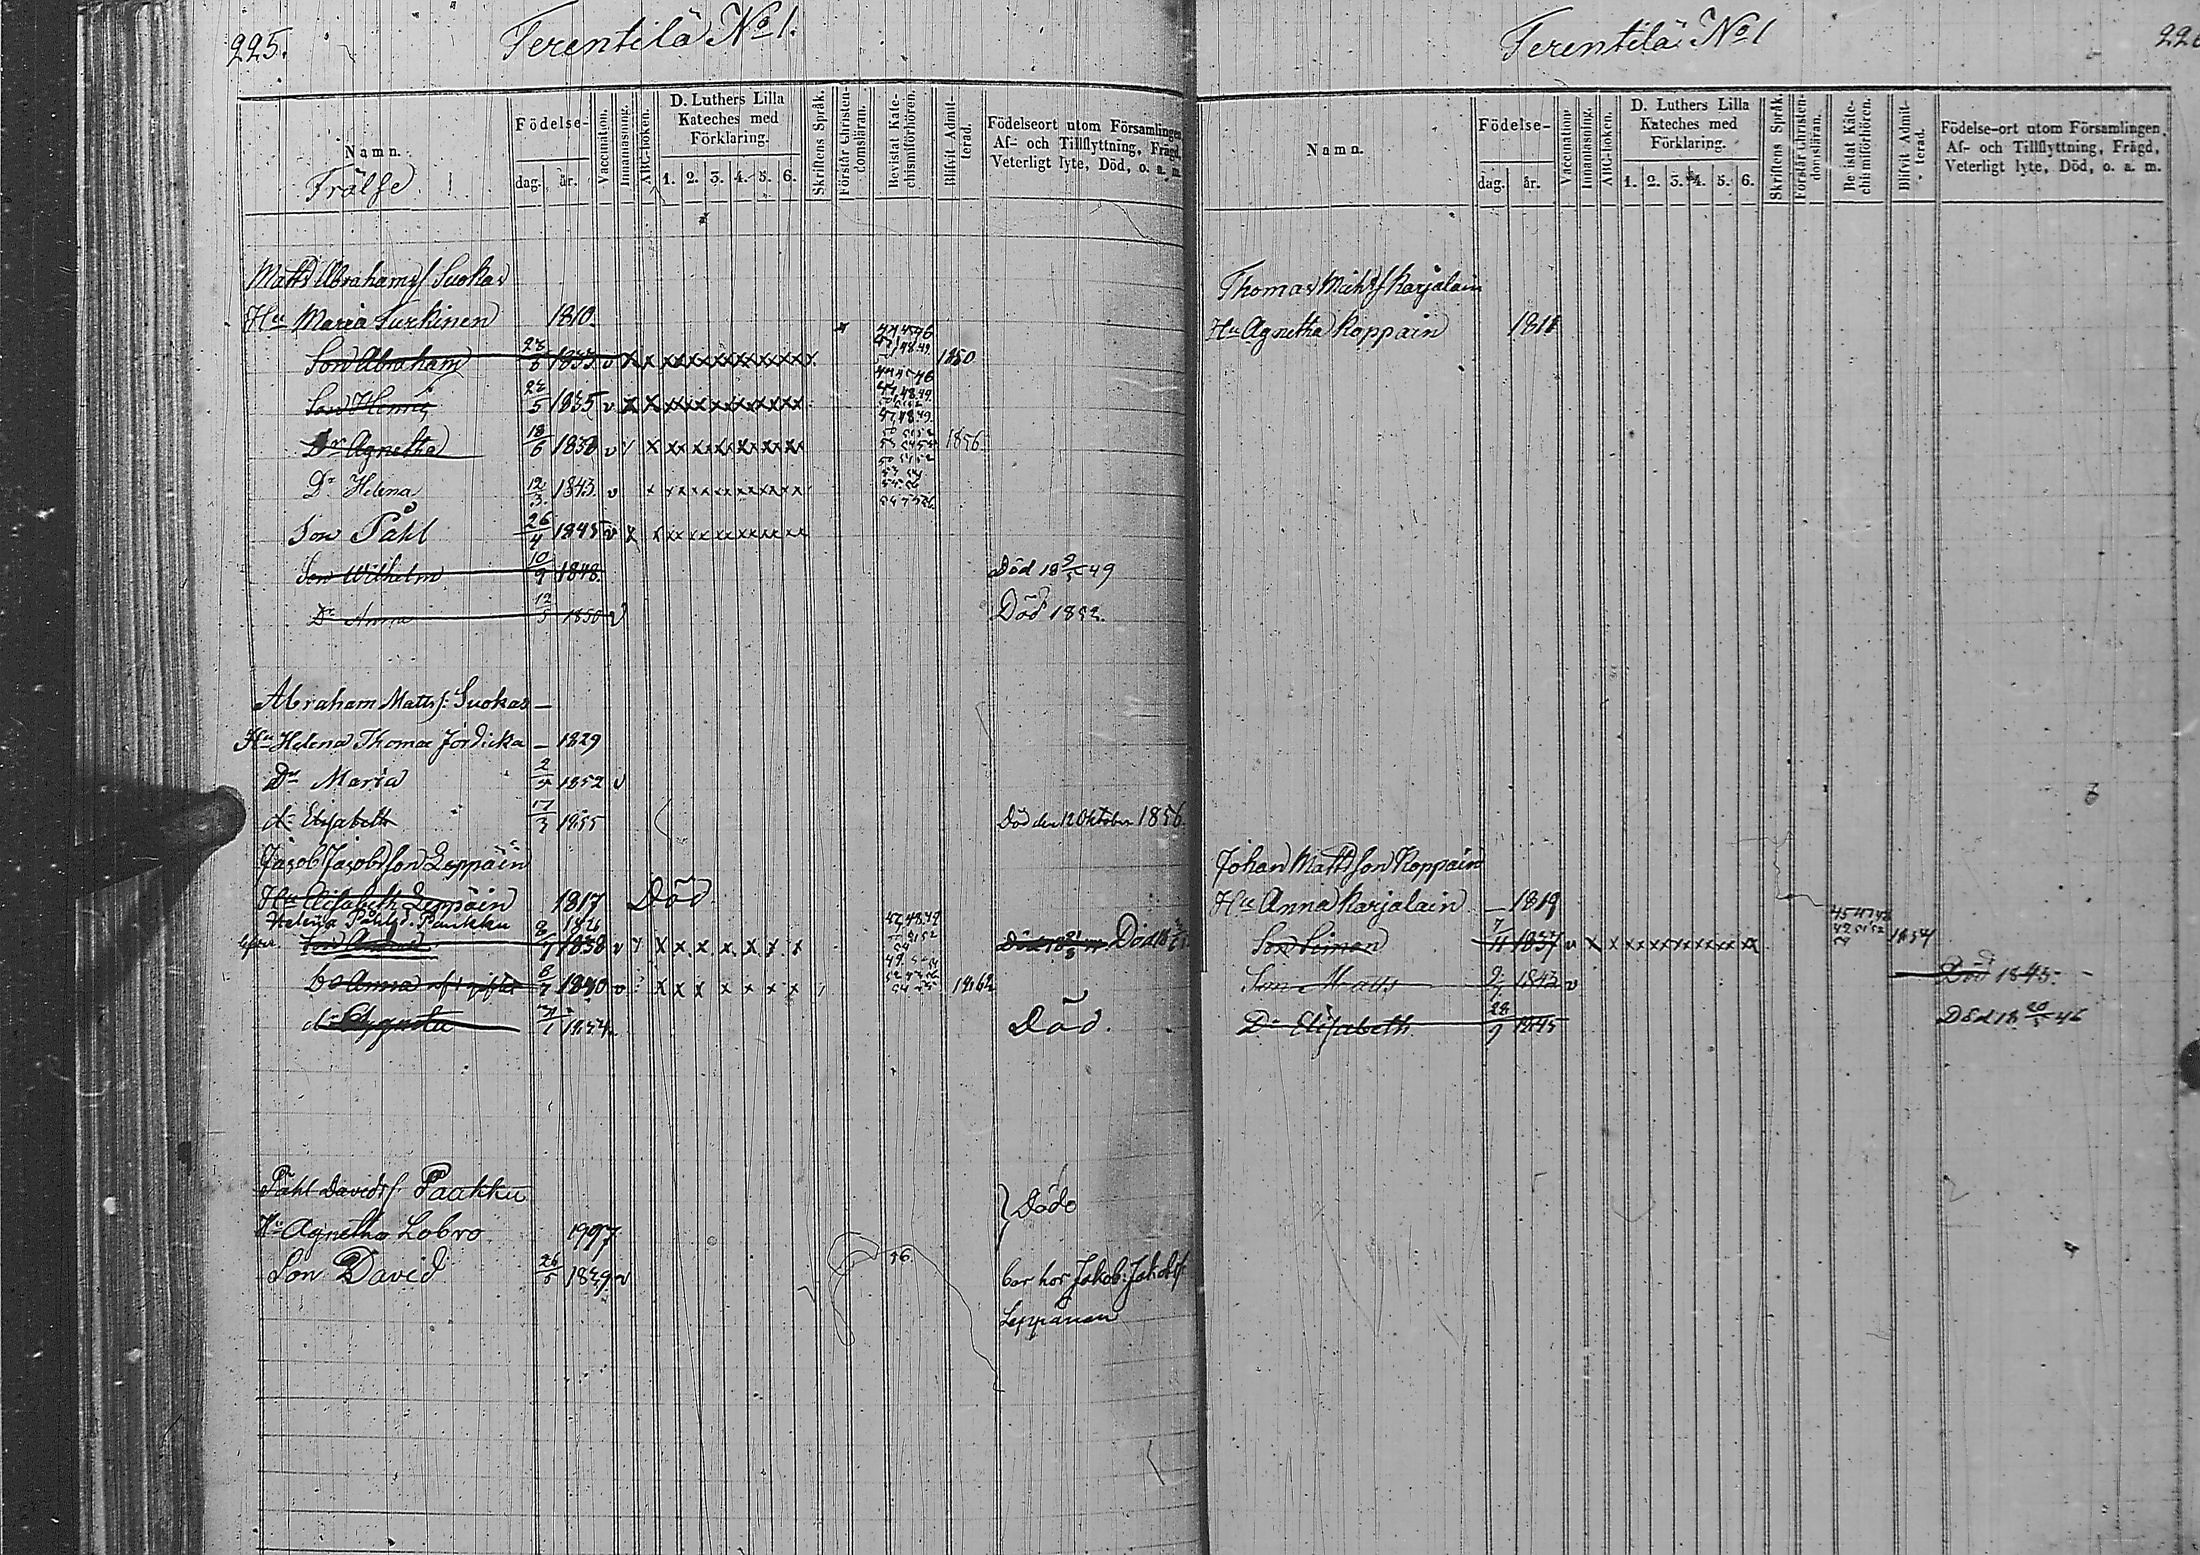 225.
Terentilä No 1.
Namn.
Frälse
Födelse-
dag. år.
Vaccination.
Innanläsning.
ABC-boken.
D. Luthers Lilla
Kateches med
Förklaring.
1. 2. 3. 4. 5. 6.
Skriftens Språk.
Förstår Christen-
domsläran.
Bevistat Kate-
chismiförhören.
Blifvit Admit-
terad.
Födelseort utom Församlingen,
Af- och Tillflyttning, Frägd,
Veterligt lyte, Död, o. a. m.
Matts Abrahams/ Suokas
Hu Maria Surkinen 1810.
Son Abraham 1833 v x x xxxxxxxxxxxx 1850
Son Henric 5 1835 v x x xxxxxxxxxxx
Dr Agnetha 18/6 1838 v x xxxxxxxxxx 1856
Dr Helena 12/3 1843 v x xxxxxxxxxx
Son Påhl 26/4 1845 v x x xxxxxxxxxx
Son Wilhelm 10/9 1848 Död 18 9/5 49
Dr Anna 12/5 1850 v Död 1852.
Abraham Matts/: Suokas –
Hu Helena Thomæ Jördicka – 1829
Dr Maria 1852 v
dr Elisabeth 17/3 1855 Död den 12 Oktober 1856.
Jacob Jacobsson Leppäin
Hu Elisabeth Leppäin 1817 Död
Helena Påhlsd. Paukku
1838 v x x x x x x x
Anna 1840 v x x x x x x x 1862
dr Agneta Död.
Påhl Davids/ Paakku } Döde
Hu Agnetha Lobro 1797
Son David 26/5 1829 v 46. bor hos Jakob Jakobs/:
Leppänen
Terentilä No 1
226
Namn.
Födelse-
dag. år.
Vaccination.
Innanläsning.
ABC-boken.
D. Luthers Lilla
Kateches med
Förklaring.
1. 2. 3. 4. 5. 6.
Skriftens Språk.
Förstår Christen-
domsläran.
Bevistat Kate-
chismiförhören.
Blifvit Admit-
terad.
Födelse-ort utom Församlingen,
Af- och Tillflyttning, Frägd,
Veterligt lyte, Död, o. a. m.
Thomas Michs/ Karjalain
Hu Agnetha Koppain 1811
Johan Mattsson Koppain
Hu Anna Karjalain – 1819
Son Simon 7/11 1837 v x xxxxxxxxxx 1854
Son Matts 1843 v Död 1845.
Dr Elisabeth 28/9 1845 Död 18 20/5 46